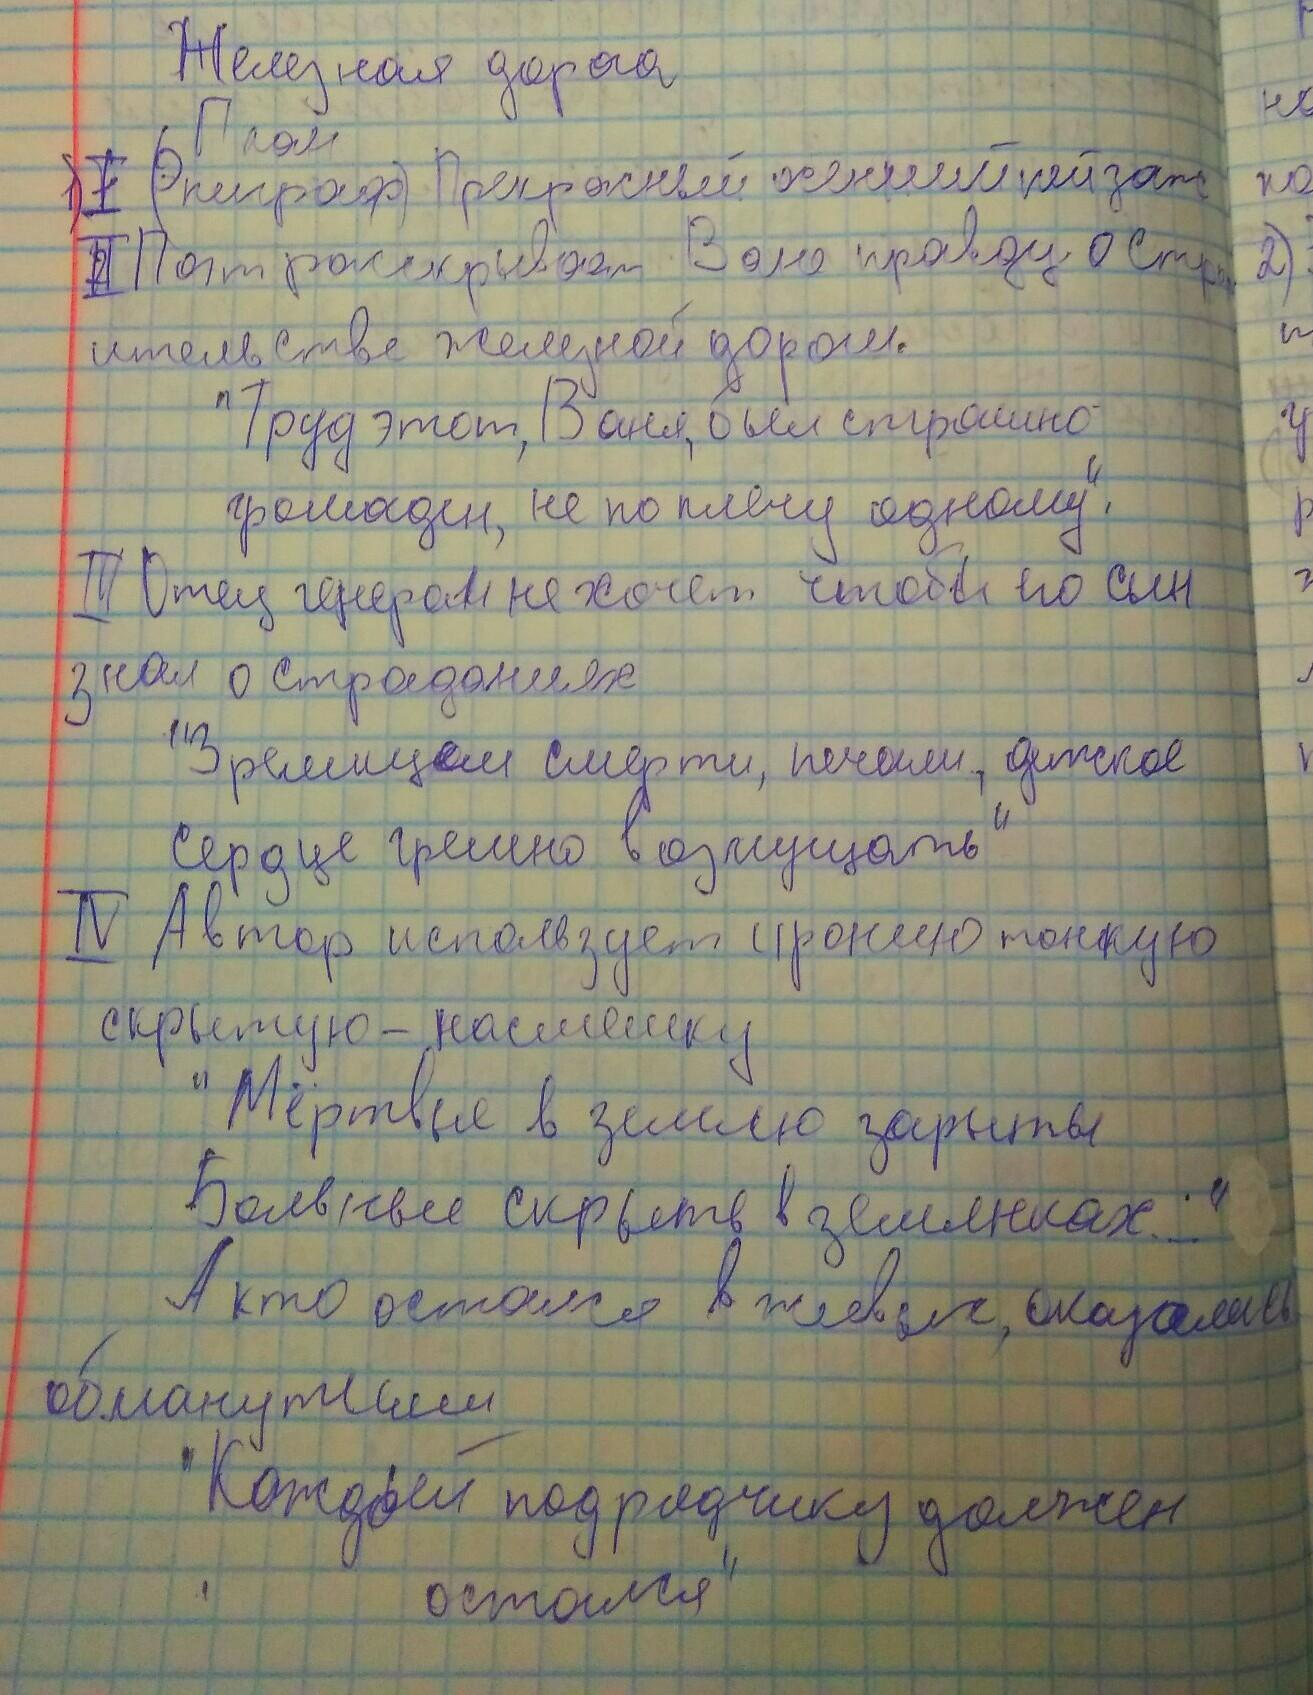 Железная дорога
План
1) I (Эпиграф) Прекрасный осенний пейзаж
II Поэт рассскрывает Ване правду о Стро
ительстве железной дороги.
"Труд этот, Ваня, был страшно
громаден, не по плечу одному".
III Отец генерал не хочет чтобы его сын
знал о страданиях
"Зрелищем смерти, печали, детское
сердце грешно возмущать"
IV Автор использует иронию тонкую
скрытую - насмешку
"Мёртвые в землю зарыты
Больные скрыты в землянках..."
А кто остался в живых, оказались
обманутыми
"Каждый подрядчику должен
остался"
2)